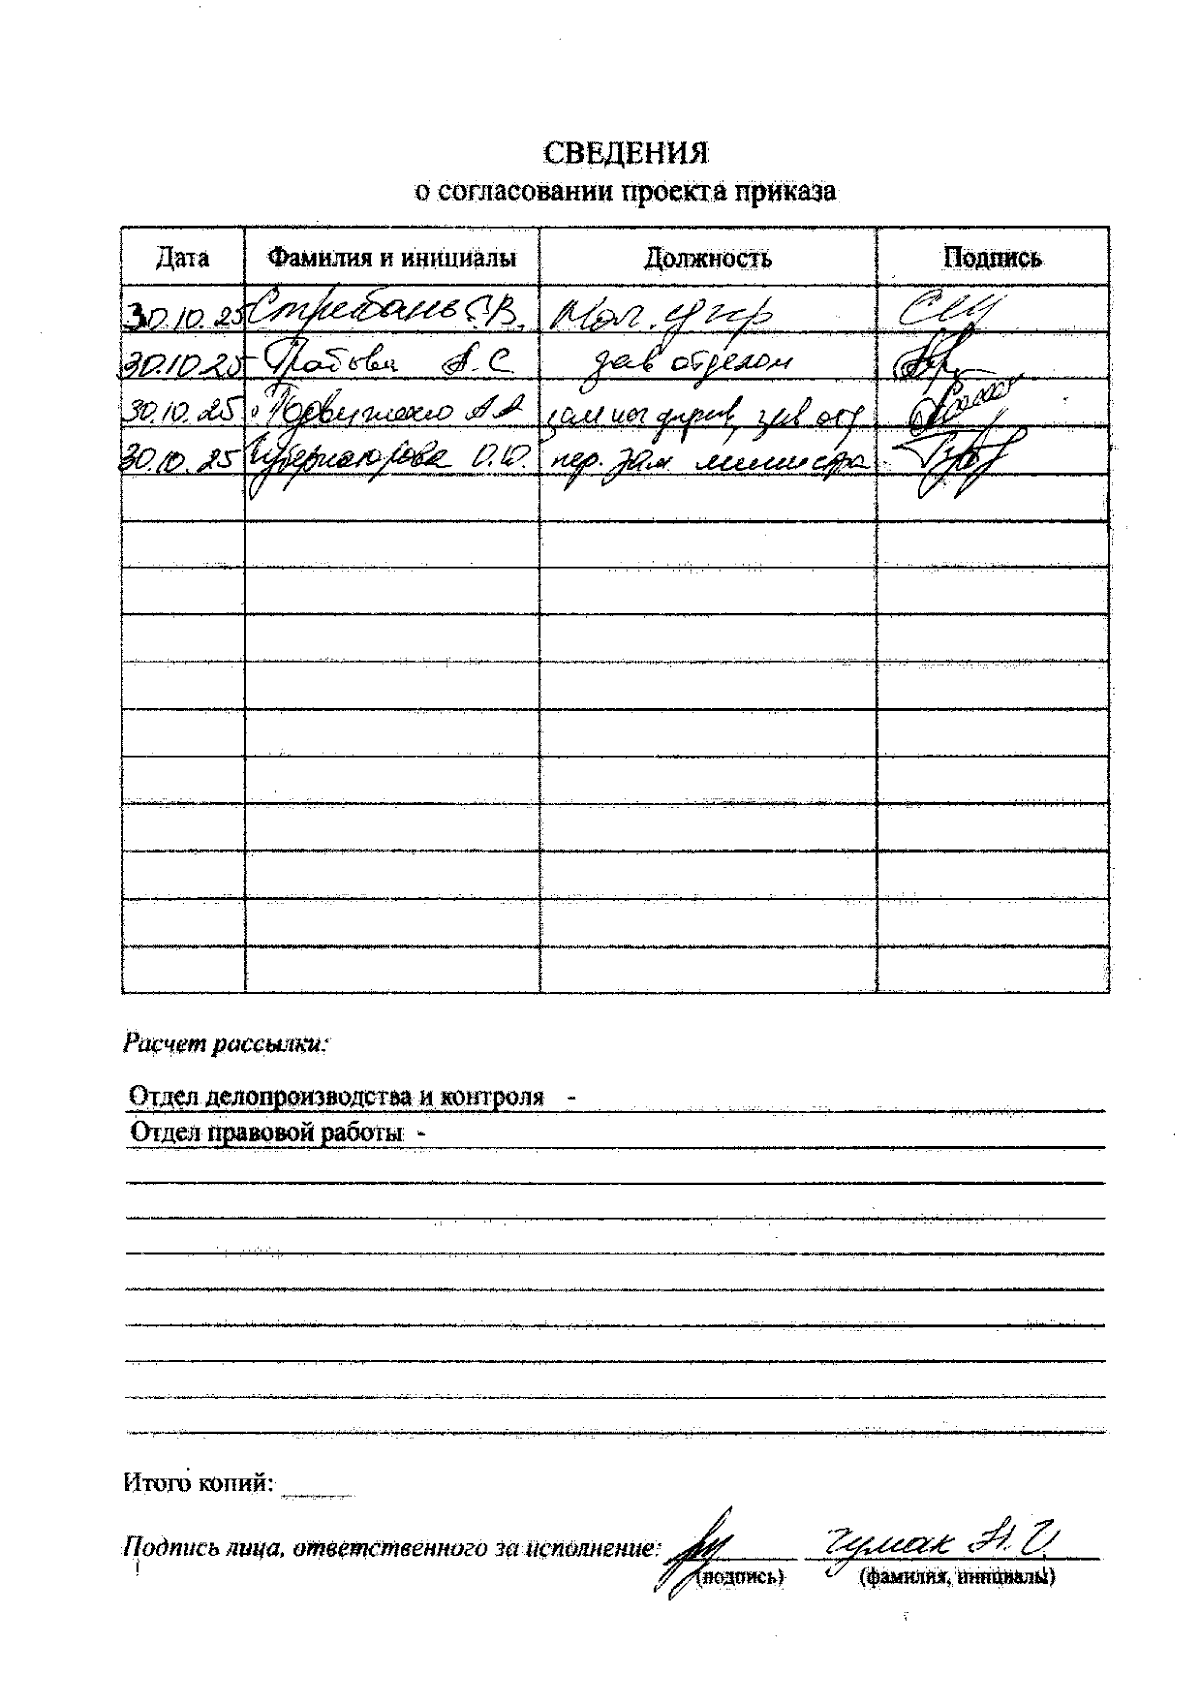 СВЕДЕНИЯ
о согласовании проекта приказа
Дата Фамилия и инициалы Должность Подпись
30.10.25 Стребань С.В.
30.10.25 А.С зав отделом
30.10.25 А А
30.10.25 Губернаторова О.Ю. пер. зам министра
Расчет рассылки:
Отдел делопроизводства и контроля -
Отдел правовой работы -
Итого копий:
Подпись лица, ответственного за исполнение: Чумак Н.И.
(подпись) (фамилия, инициалы)